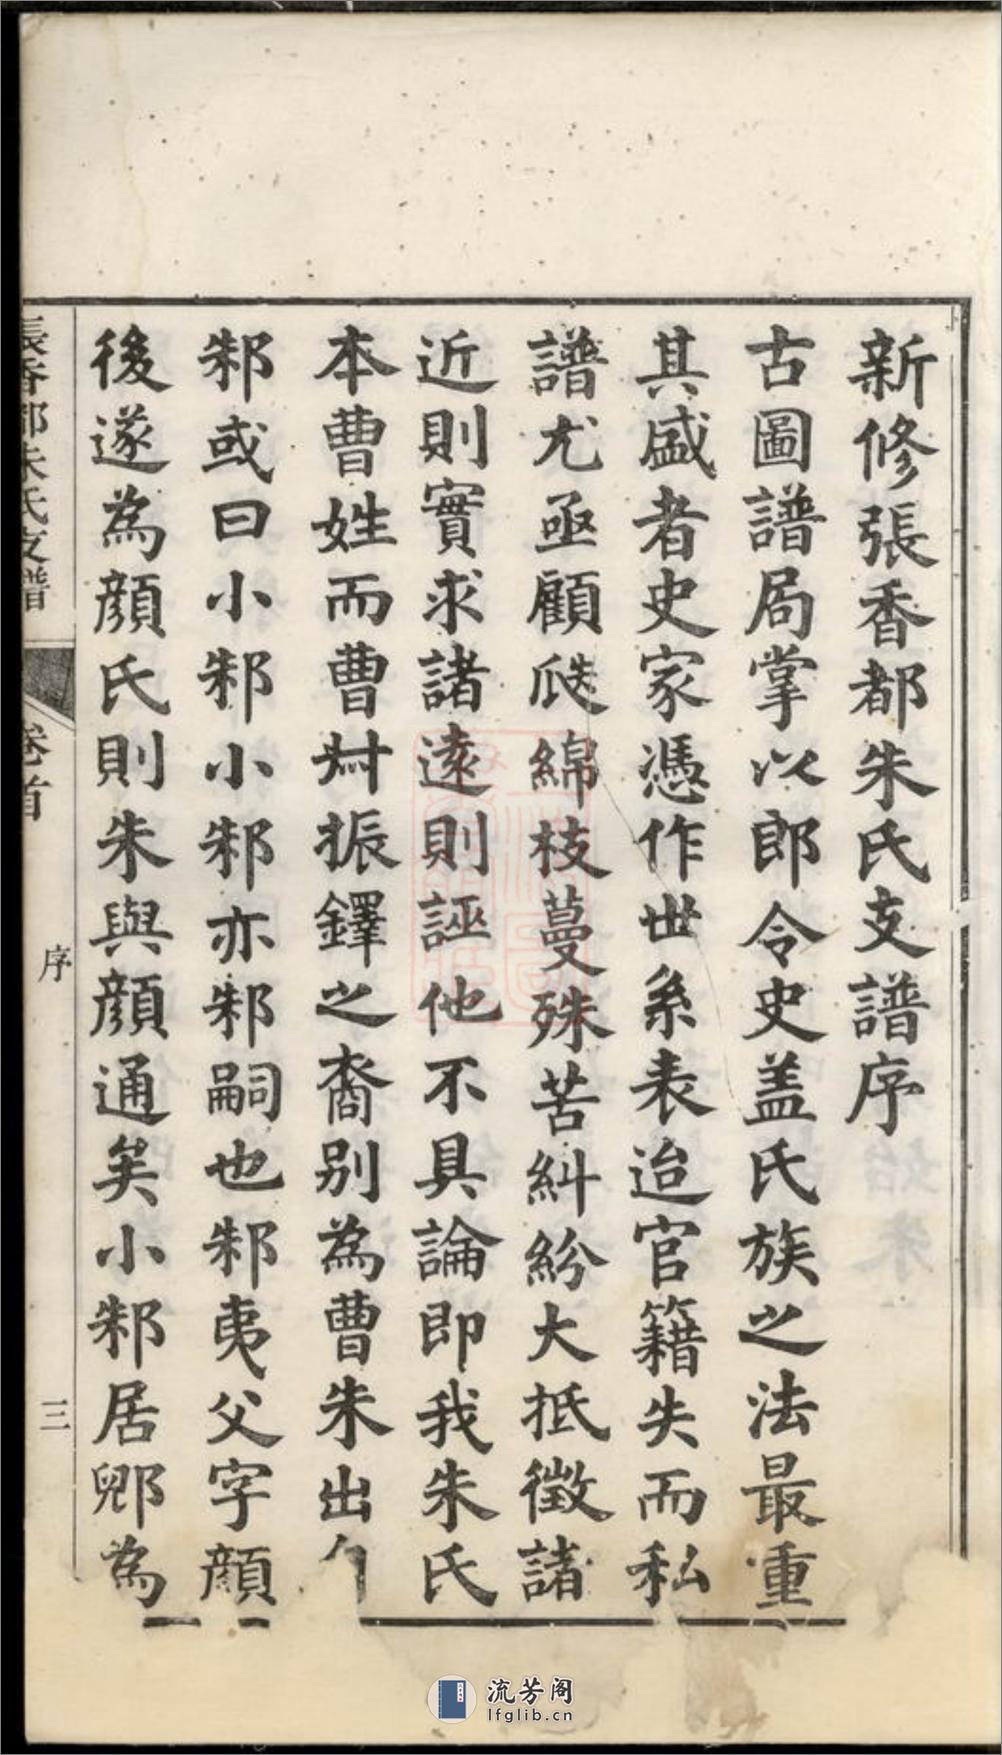 新修張香都朱氏支譜序
古圖譜局掌以郎令史盖氏族之法最重
其盛者史家憑作世系表迨官籍失而私
譜尤亟顧瓞綿枝蔓殊苦糾紛大抵徵諸
近則實求諸遠則誣他不具論即我朱氏
本曹姓而曹叔振鐸之裔别為曹朱出
邾或曰小邾小邾亦邾嗣也邾夷父字顏
後遂為顏氏則朱與顏通矣小邾居郳為
張香都朱氏支譜
卷首
序
三
流芳阁
lfglib.cn